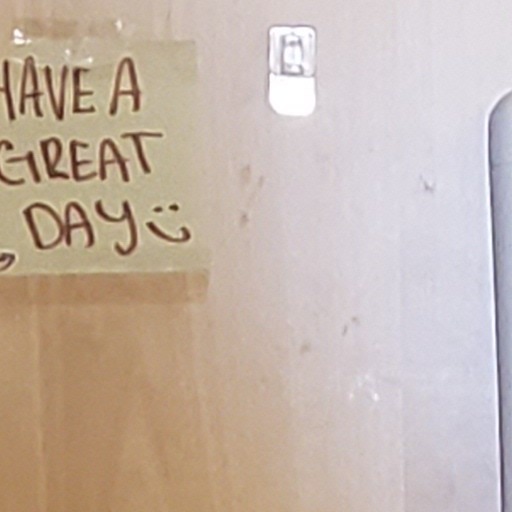 HAVE A
GREAT
DAY